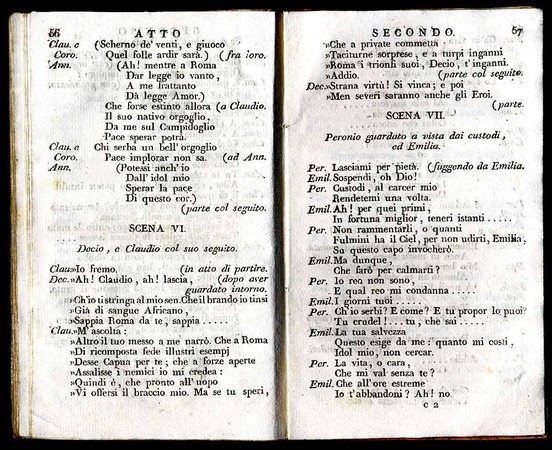 56 ATTO
Clau. e (Scherno de' venti, e giuoco
Coro. Quel folle ardir sarà.) (fra loro.
Ann. (Ah! mentre a Roma
Dar legge io vanto,
A me frattanto
Dà legge Amor.)
Che forse estinto allora (a Claudio.
Il suo nativo orgoglio,
Da me sul Campidoglio
Pace sperar potrà.
Clau. e Chi serba un bell' orgoglio
Coro. Pace implorar non sa. (ad Ann.
Ann. (Potessi anch' io
Dall' idol mio
Sperar la pace
Di questo cor.)
(parte col seguito.
SCENA VI.
Decio, e Claudio col suo seguito.
Clau.»Io fremo. (in atto di partire.
Dec.»Ah! Claudio, ah! lascia, (dopo aver
guardato intorno.
»Ch'io ti stringa al mio sen. Che il brando io tinsi
»Già di sangue Africano,
»Sappia Roma da te, sappia .....
Clau.»M' ascolta:
»Altro il tuo messo a me narrò. Che a Roma
»Di ricomposta fede illustri esempj
»Desse Capua per te; che a forze aperte
»Assalisse i nemici io mi credea:
»Quindi è, che pronto all' uopo
»Vi offersi il braccio mio. Ma se tu speri,
SECONDO. 57
»Che a private commetta
»Taciturne sorprese, e a turpi inganni
»Roma i trionfi suoi, Decio, t' inganni.
»Addio. (parte col seguito.
Dec.»Strana virtù! Si vinca; e poi
»Men severi saranno anche gli Eroi.
(parte.
SCENA VII.
Peronio guardato a vista dai custodi,
ed Emilia.
Per. Lasciami per pietà. (fuggendo da Emilia.
Emil. Sospendi, oh Dio!
Per. Custodi, al carcer mio
Rendetemi una volta.
Emil. Ah! per quei primi,
In fortuna miglior, teneri istanti .....
Per. Non rammentarli, o quanti
Fulmini ha il Ciel, per non udirti, Emilia,
Su questo capo invocherò.
Emil. Ma dunque,
Che farò per calmarti?
Per. Io reo non sono,
E qual reo mi condanna ....
Emil. I giorni tuoi .....
Per. Ch'io serbi? E come? E tu propor lo puoi?
Tu crudel! ... tu, che sai .....
Emil. La tua salvezza
Questo esige da me: quanto mi costi,
Idol mio, non cercar.
Per. La vita, o cara,
Che mi val senza te?
Emil. Che all' ore estreme
Io t'abbandoni? Ah! no.
C 2